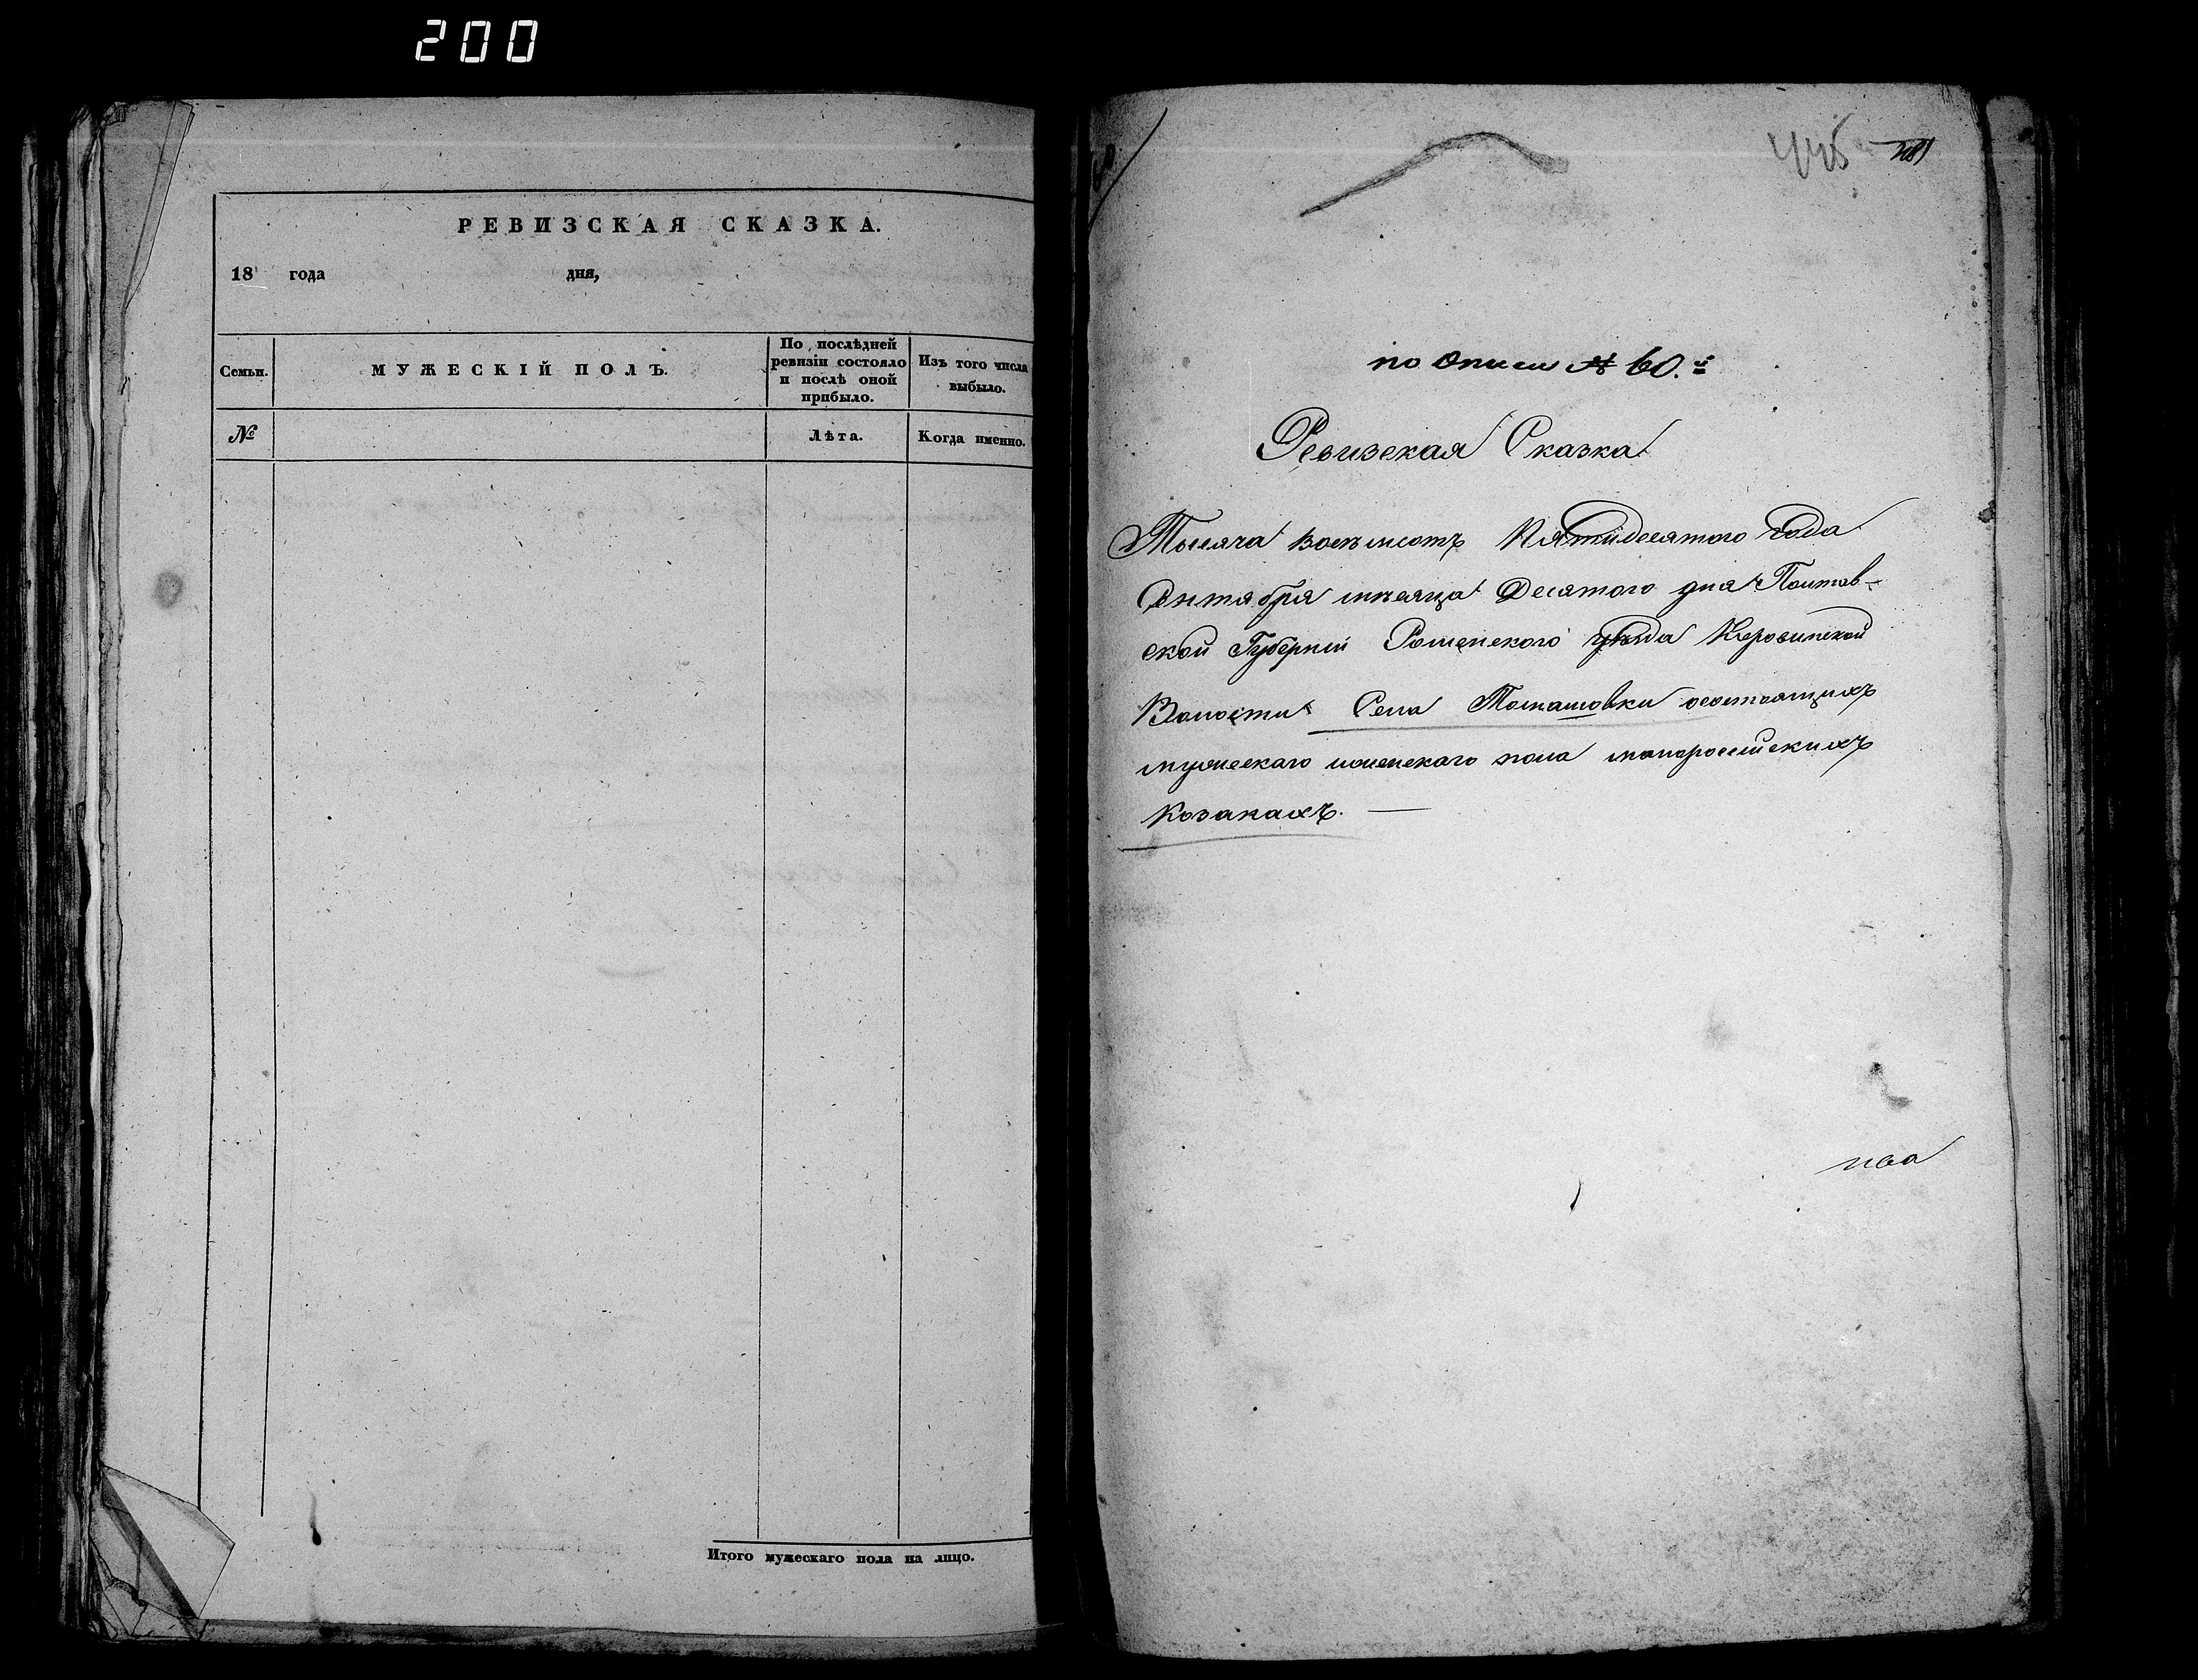 200
РЕВИЗСКАЯ СКАЗКА.
18 года дня,
Семьи.
МУЖЕСКІЙ ПОЛЪ.
По послѣдней
ревизіи состояло
и послѣ оной
прибыло.
Изъ того числа
выбыло.
№
Лѣта.
Когда именно.
Итого мужескаго пола на лицо.
445
по Описи № 60.й
Ревизская Сказка
Тысяча восемьсотъ Пятидесятого года
Октября мѣсяца Десятого дня Полтав-
ской Губерніи Роменского уѣзда Коровинской
Волости Села Томашовки состоящихъ
мужескаго и женскаго пола малороссійскихъ
козакахъ. —